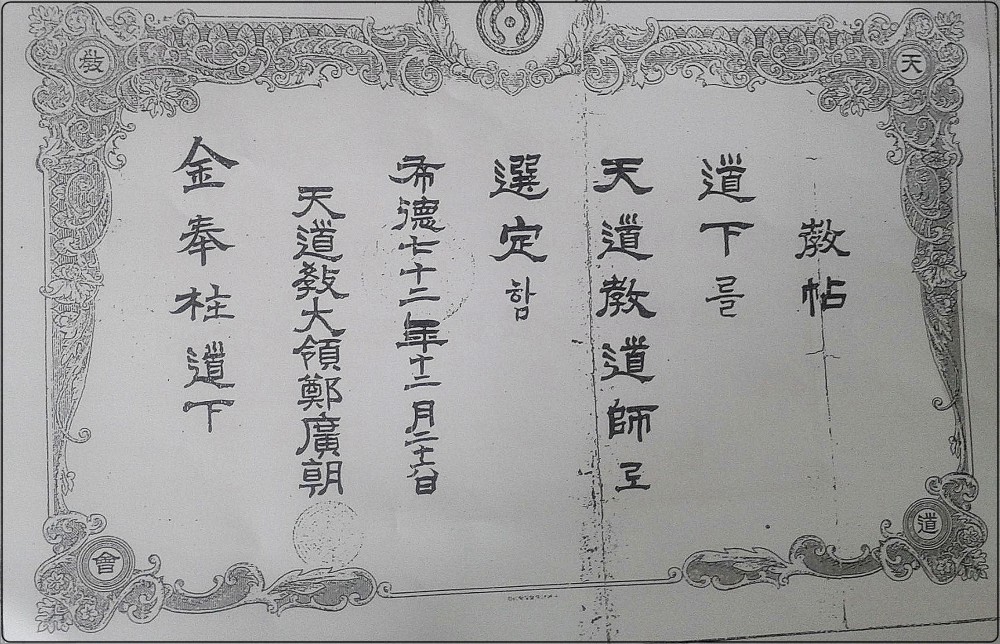 天
道
教
會
教帖
道下를
天道教道師로
選定함
布德七十二年十二月二十六日
天道教大領鄭廣朝
金奉柱道下